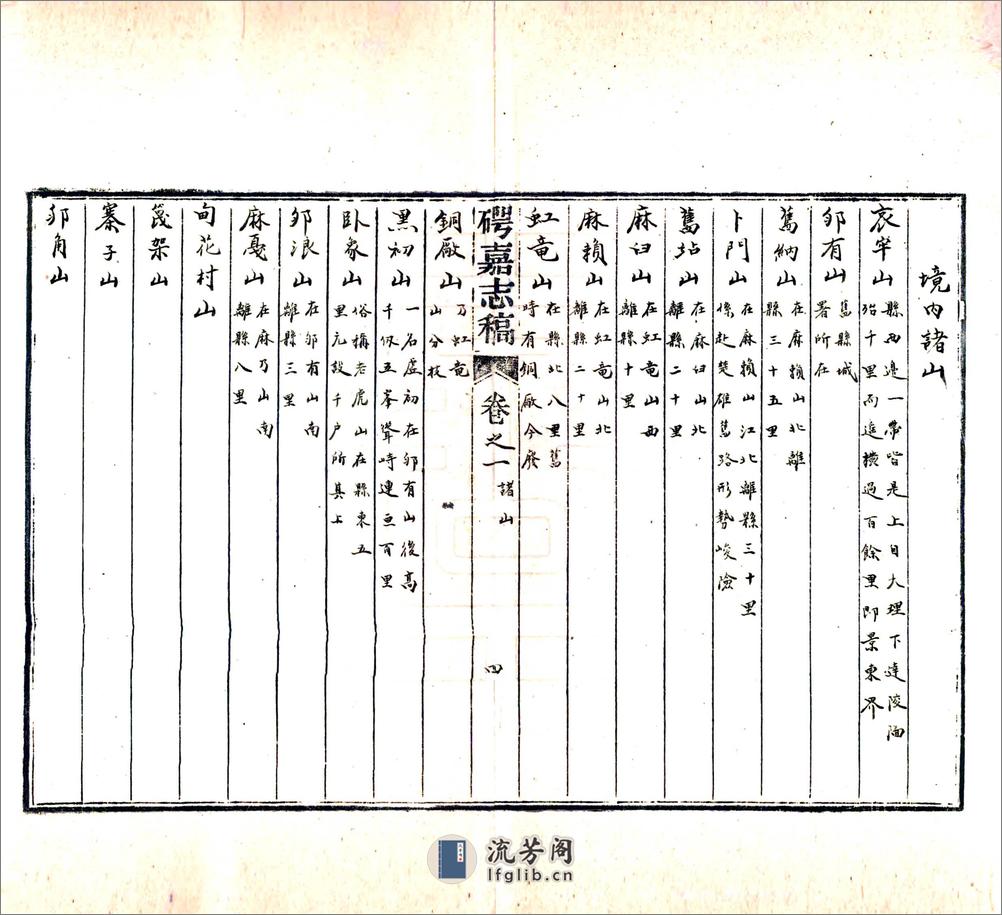 境内諸山
哀牢山 縣西邊一帶皆是上自大理下達陵陲
殆千里而遙橫過百餘里即景東界
邜有山 舊縣城
署所在
舊納山 在麻賴山北離
縣三十五里
卜門山 在麻賴山江北離縣三十里
係赴楚雄舊路形勢峻險
舊坫山 在麻臼山北
離縣二十里
麻臼山 在虹竜山西
離縣十里
麻賴山 在虹竜山北
離縣二十里
虹竜山 在縣北八里舊
時有銅厰今廢
碍嘉志稿 卷之一 諸山 四
銅厰山 乃虹竜
山分枝
黑初山 一名虛初在邜有山後高
千仭五峯聳峙連亘百里
卧象山 俗稱老虎山在縣東五
里元設千户所其上
邜浪山 在邜有山南
離縣三里
麻戞山 在麻乃山南
離縣八里
甸花村山
筏架山
寨子山
邜角山
流芳阁
lfglib.cn